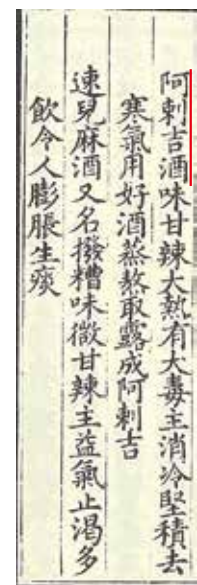 阿剌吉酒味甘辣大熱有大毒主消冷堅積去
寒氣用好酒蒸熬取露成阿剌吉
速兒麻酒又名撥糟味微甘辣主益氣止渴多
飲令人膨脹生痰